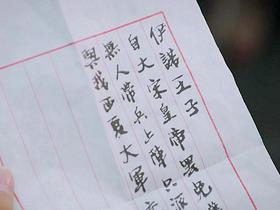 伊諾王子
自大宋皇帝罢免
無人帶兵上陣只派
與我西夏大軍